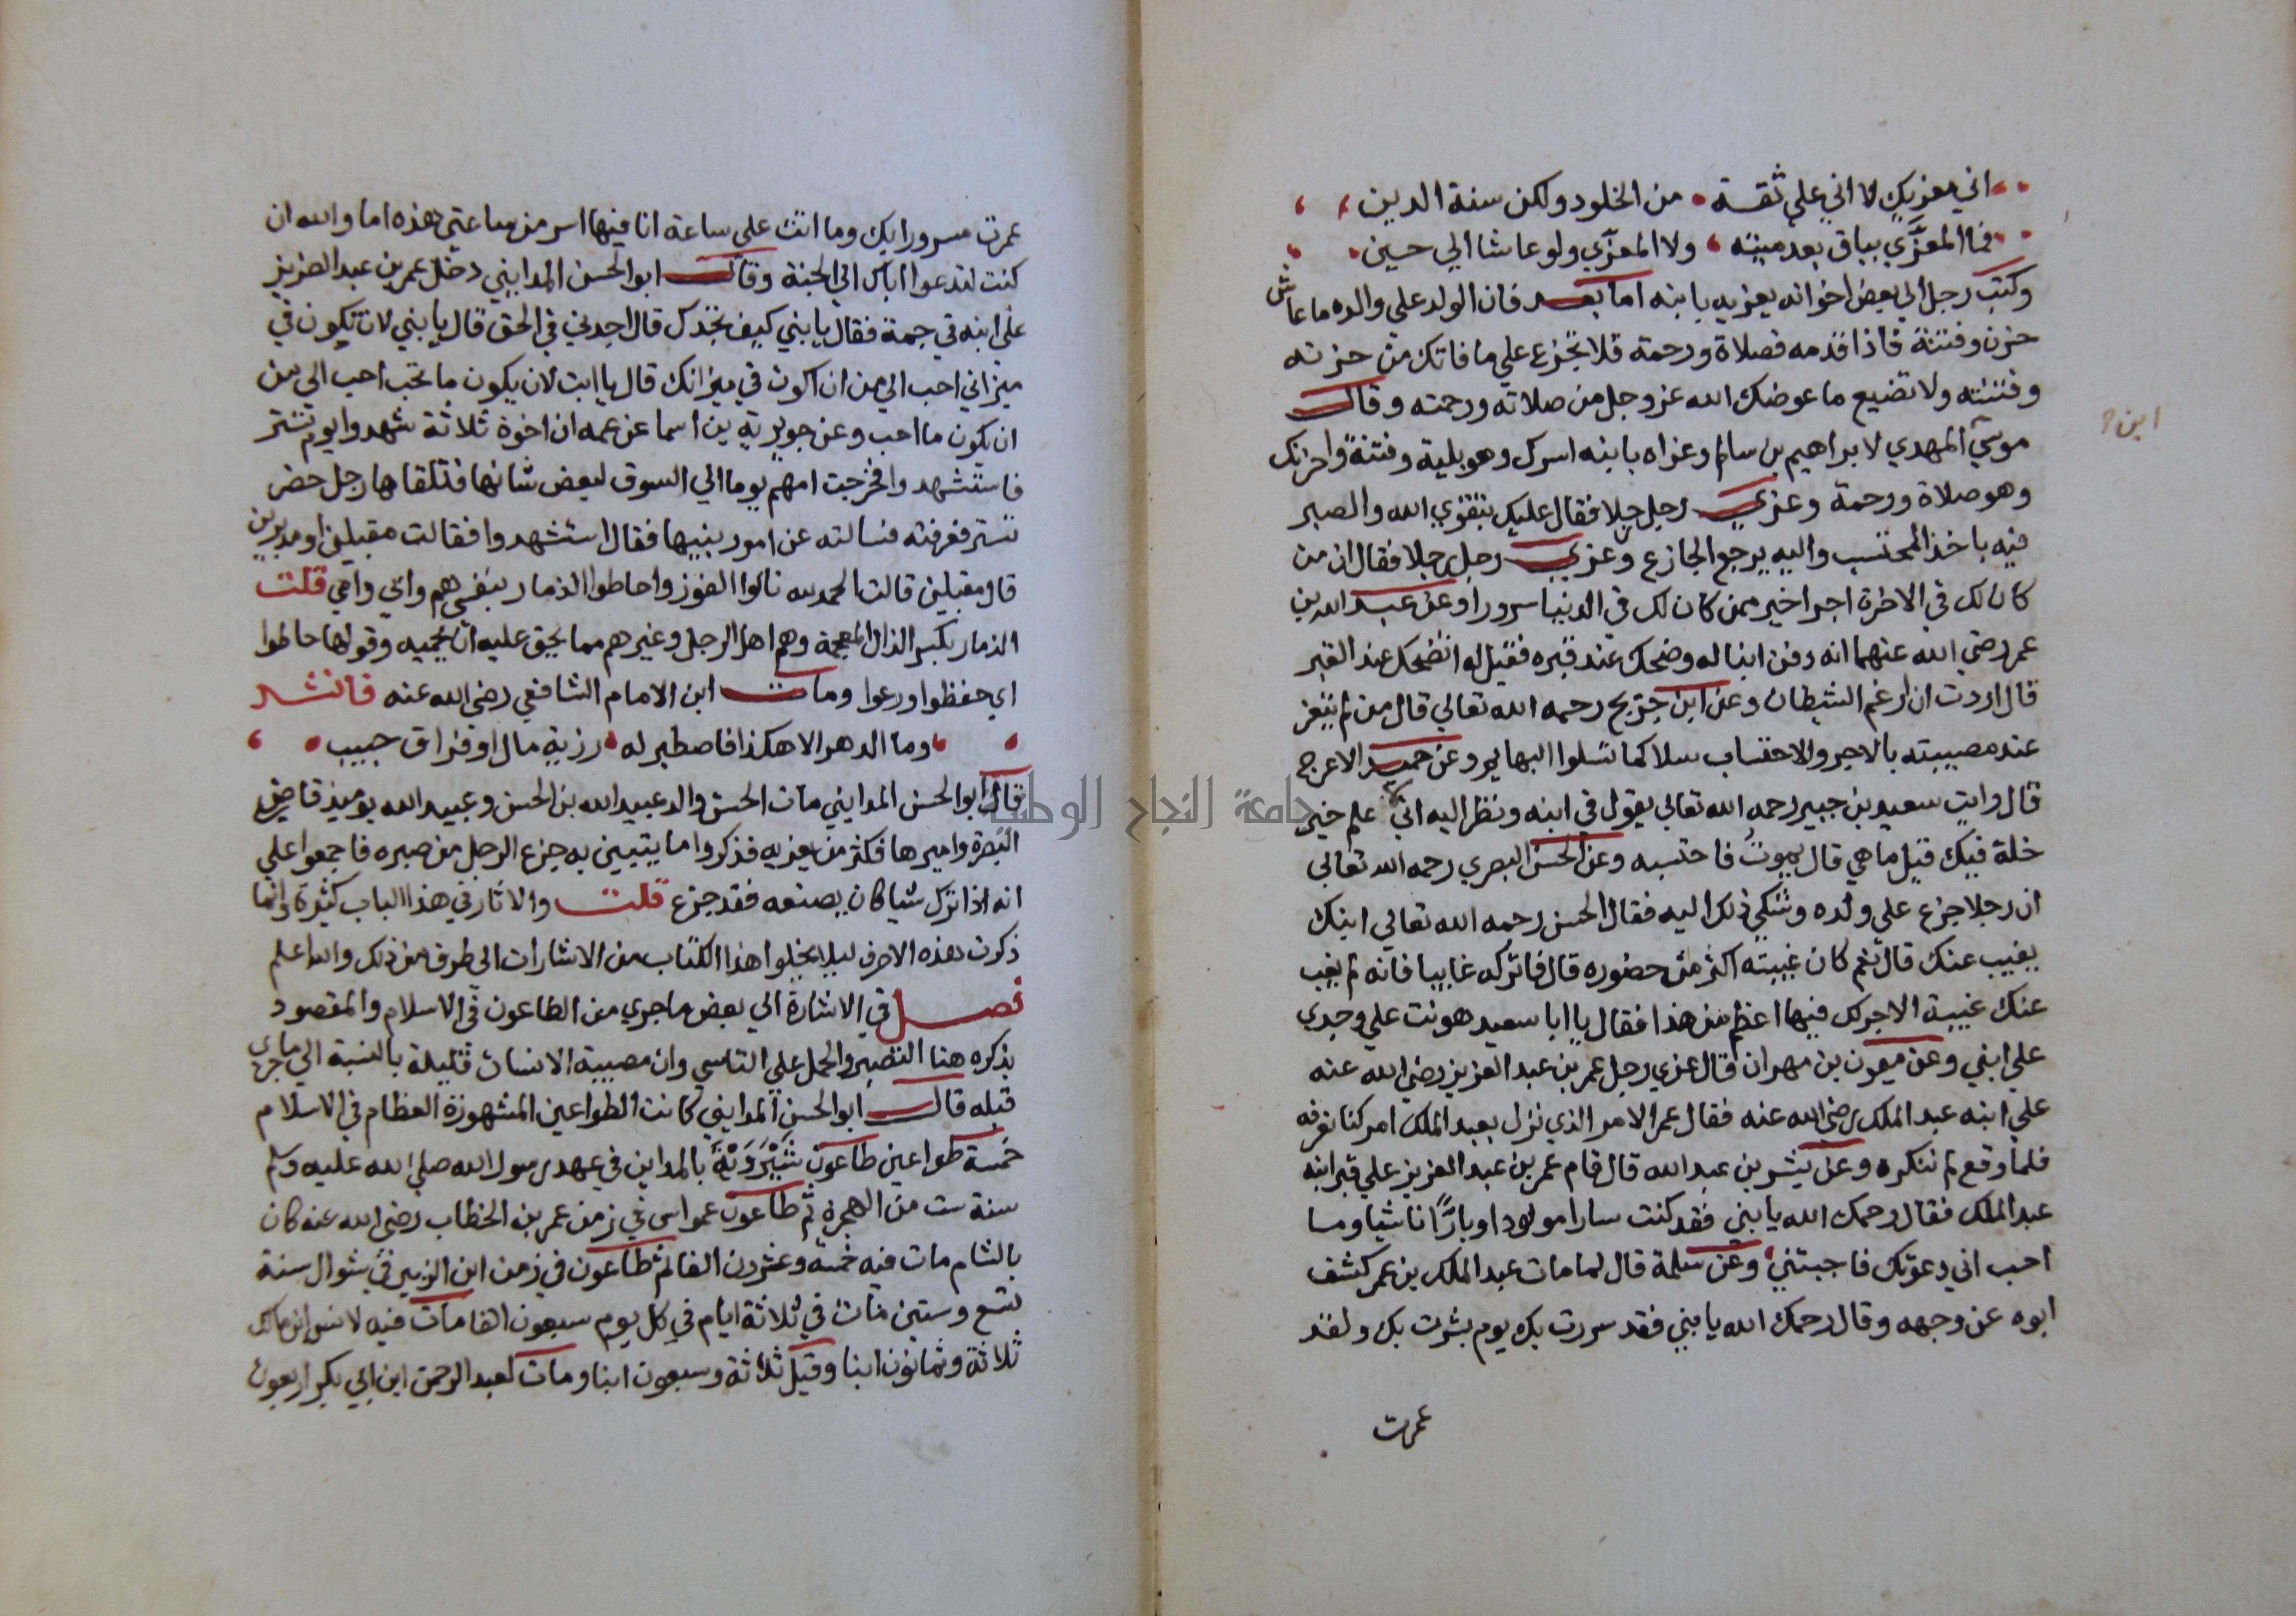 اني معزيك لا اني علي ثقة من الخلود ولكن سنة الدين
فما المعزَّي بباق بعد ميته ولا المعزّي ولو عاشا الي حين
وكتب رجل الي بعض اخوانه يعزيه بابنه اما بعد فان الولد علي والده ما عاش
حزن وفتنة فاذا قدمه فصلاة ورحمة فلا تجزع علي ما فاتك من حزنه
وفتنته ولا تضيع ما عوضك الله عز وجل من صلاته ورحمته وقال
موسي المهدي لابراهيم بن سالم وعزاه بابنه اسرك وهو بلية وفتنة واحزنك
وهو صلاة ورحمة وعزي رجل رجلا فقال عليك بتقوي الله والصبر
فيه ياخذ المحتسب واليه يرجع الجازع وعزي رجل رجلا فقال ان من
كان لك في الاخرة اجرا خير ممن كان لك في الدنيا سرورا وعن عبد الله بن
عمر رضي الله عنهما انه دفن ابنا له وضحك عند قبره فقيل له اتضحك عند القبر
قال اردت ان ارغم الشيطان وعن ابن جريج رحمه الله تعالي قال من لم يتعز
عند مصيبته بالاجر والاحتساب سلا كما تسلوا البهايم وعن حميد الاعرج
قال رايت سعيد بن جبير رحمه الله تعالي يقول في ابنه ونظر اليه اني لاعلم خير
خلة فيك قيل ما هي قال يموت فاحتسبه وعن الحسن البصري رحمه الله تعالي
ان رجلا جزع علي ولده وشكي ذلك اليه فقال الحسن رحمه الله تعالي ابنك
يغيب عنك قال نعم كان غيبته اكثر من حضوره قال فاتركه غايبا فانه لم يغب
عنك غيبة الاجر لك فيها اعظم من هذا فقال يا ابا سعيد هونت علي وجدي
علي ابني وعن ميمون بن مهران قال عزي رجل عمر بن عبد العزيز رضي الله عنه
علي ابنه عبد الملك رضي الله عنه فقال عمر الامر الذي نزل بعبد الملك امر كنا نعرفه
فلما وقع لم ننكره وعن بشر بن عبد الله قال قام عمر بن عبد العزيز علي قبر ابنه
عبد الملك فقال رحمك الله يا بني فقد كنت سارا مولودا وبارًّا ناشيا وما
احب اني دعوتك فاجبتني وعن سلمة قال لما مات عبد الملك بن عمر كشف
ابوه عن وجهه وقال رحمك الله يا بني فقد سررت بك يوم بشرت بك ولقد
عمرت
ابن
عمرت مسرورا بك وما اتت علي ساعة انا فيها اسر من ساعتي هذه اما والله ان
كنت لتدعوا اباك الي الجنة وقال ابو الحسن المدايني دخل عمر بن عبد العزيز
علي ابنه في فقال يا بني كيف تجدك قال اجدني في الحق قال يا بني لان تكون في
ميزاني احب الي من ان اكون في ميزانك قال يا ابت لان يكون ما تحب احب الي من
ان يكون ما احب وعن جويرية بن اسما عن عمه ان اخوة ثلاثة شهدوا يوم تستر
فاستشهدوا فخرجت امهم يوما الي السوق لبعض شانها فتلقاها رجل حضر
تستر فعرفته فسالته عن امور بنيها فقال استشهدوا فقالت مقبلين او مدبرين
قال مقبلين قالت الحمد لله نالوا الفوز واحاطوا الذمار بنفسي هم وابي وامي قلت
الذمار بكسر الذال المعجمة وهم اهل الرجل وغيرهم مما يحق عليه ان يحميه وقولها حاطوا
اي حفظوا ورعوا ومات ابن الامام الشافعي رضي الله عنه فانشد
وما الدهر الا هكذا فاصطبر له رزية مال او فراق حبيب
قال ابو الحسن المدايني مات الحسن والد عبيد الله بن الحسن وعبيد الله يوميذ قاضي
البصرة واميرها فكثر من يعزيه فذكروا ما يتبين به جزع الرجل من صبره فاجمعوا علي
انه اذا ترك شيا كان يصنعه فقد جزع قلت والاثار في هذا الباب كثيرة وانما
ذكرت هذه الاحرف ليلا يخلوا هذا الكتاب من الاشارات الي طرف من ذلك والله اعلم
فصل في الاشارة الي بعض ما جري من الطاعون في الاسلام والمقصود
بذكره هنا التصبر والحمل علي التاسي وان مصيبة الانسان قليلة بالنسبة الي ما جري
قبله قال ابو الحسن المدايني كانت الطواعين المشهورة العظام في الاسلام
خمسة طواعين طاعون شَيْرَوَيْهَ بالمداين في عهد رسول الله صلي الله عليه وسلم
سنة ست من الهجرة ثم طاعون عمواس في زمن عمر بن الخطاب رضي الله عنه كان
بالشام مات فيه خمسة وعشرون الفا ثم طاعون في زمن ابن الزبير في شوال سنة
تسع وستين مات في ثلاثة ايام في كل يوم سبعون الفا مات فيه لانس ابن مالك
ثلاثة وثمانون ابنا وقيل ثلاثة وسبعون ابنا ومات لعبد الرحمن ابن ابي بكر اربعون
جامعة النجاح الوطنية